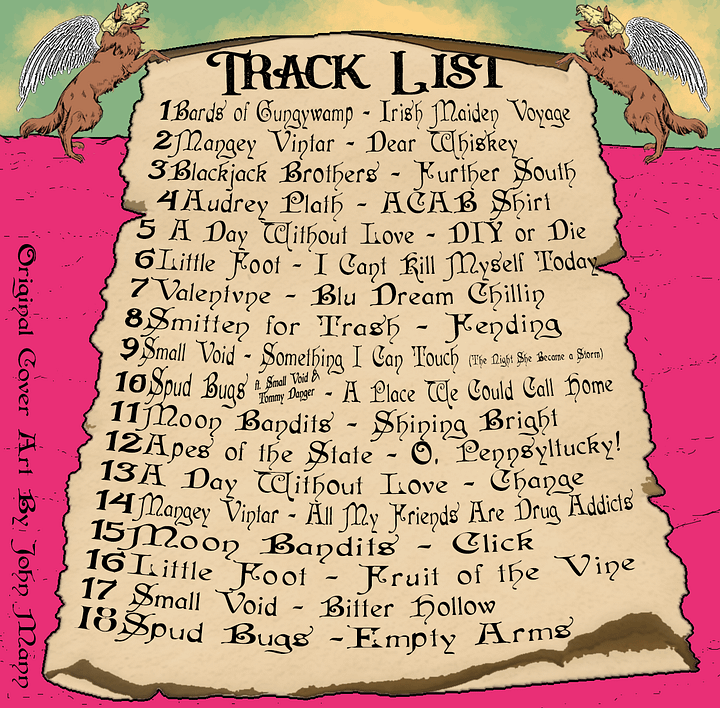 Track List
1 Bards of Gungywamp - Irish Maiden Voyage
2 Mangey Vintar - Dear Whiskey
3 Blackjack Brothers - Further South
4 Audrey Plath - ACAB Shirt
5 A Day Without Love - DIY or Die
6 Little Foot - I Cant Kill Myself Today
7 Valentvne - Blu Dream Chillin
8 Smitten for Trash - Fending
9 Small Void - Something I Can Touch (The Night She Became a Storm)
10 Spud Bugs ft. Small Void & Tommy Danger - A Place We Could Call Home
11 Moon Bandits - Shining Bright
12 Apes of the State - O, Pennsyltucky!
13 A Day Without Love - Change
14 Mangey Vintar - All My Friends Are Drug Addicts
15 Moon Bandits - Click
16 Little Foot - Fruit of the Vine
17 Small Void - Bitter Hollow
18 Spud Bugs - Empty Arms
Original Cover Art By: John Mapp